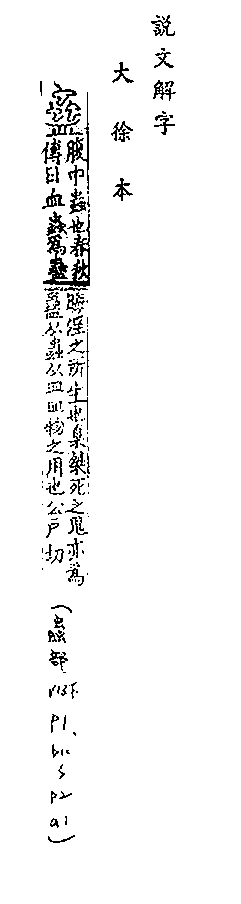 說文解字
大徐本
蠱
腹中蟲也春秋
傳曰皿蟲爲蠱
晦淫之所生也梟桀死之鬼亦爲
蠱从蟲从皿皿物之用也公戶切
(蟲部
p1,
p2
a1)